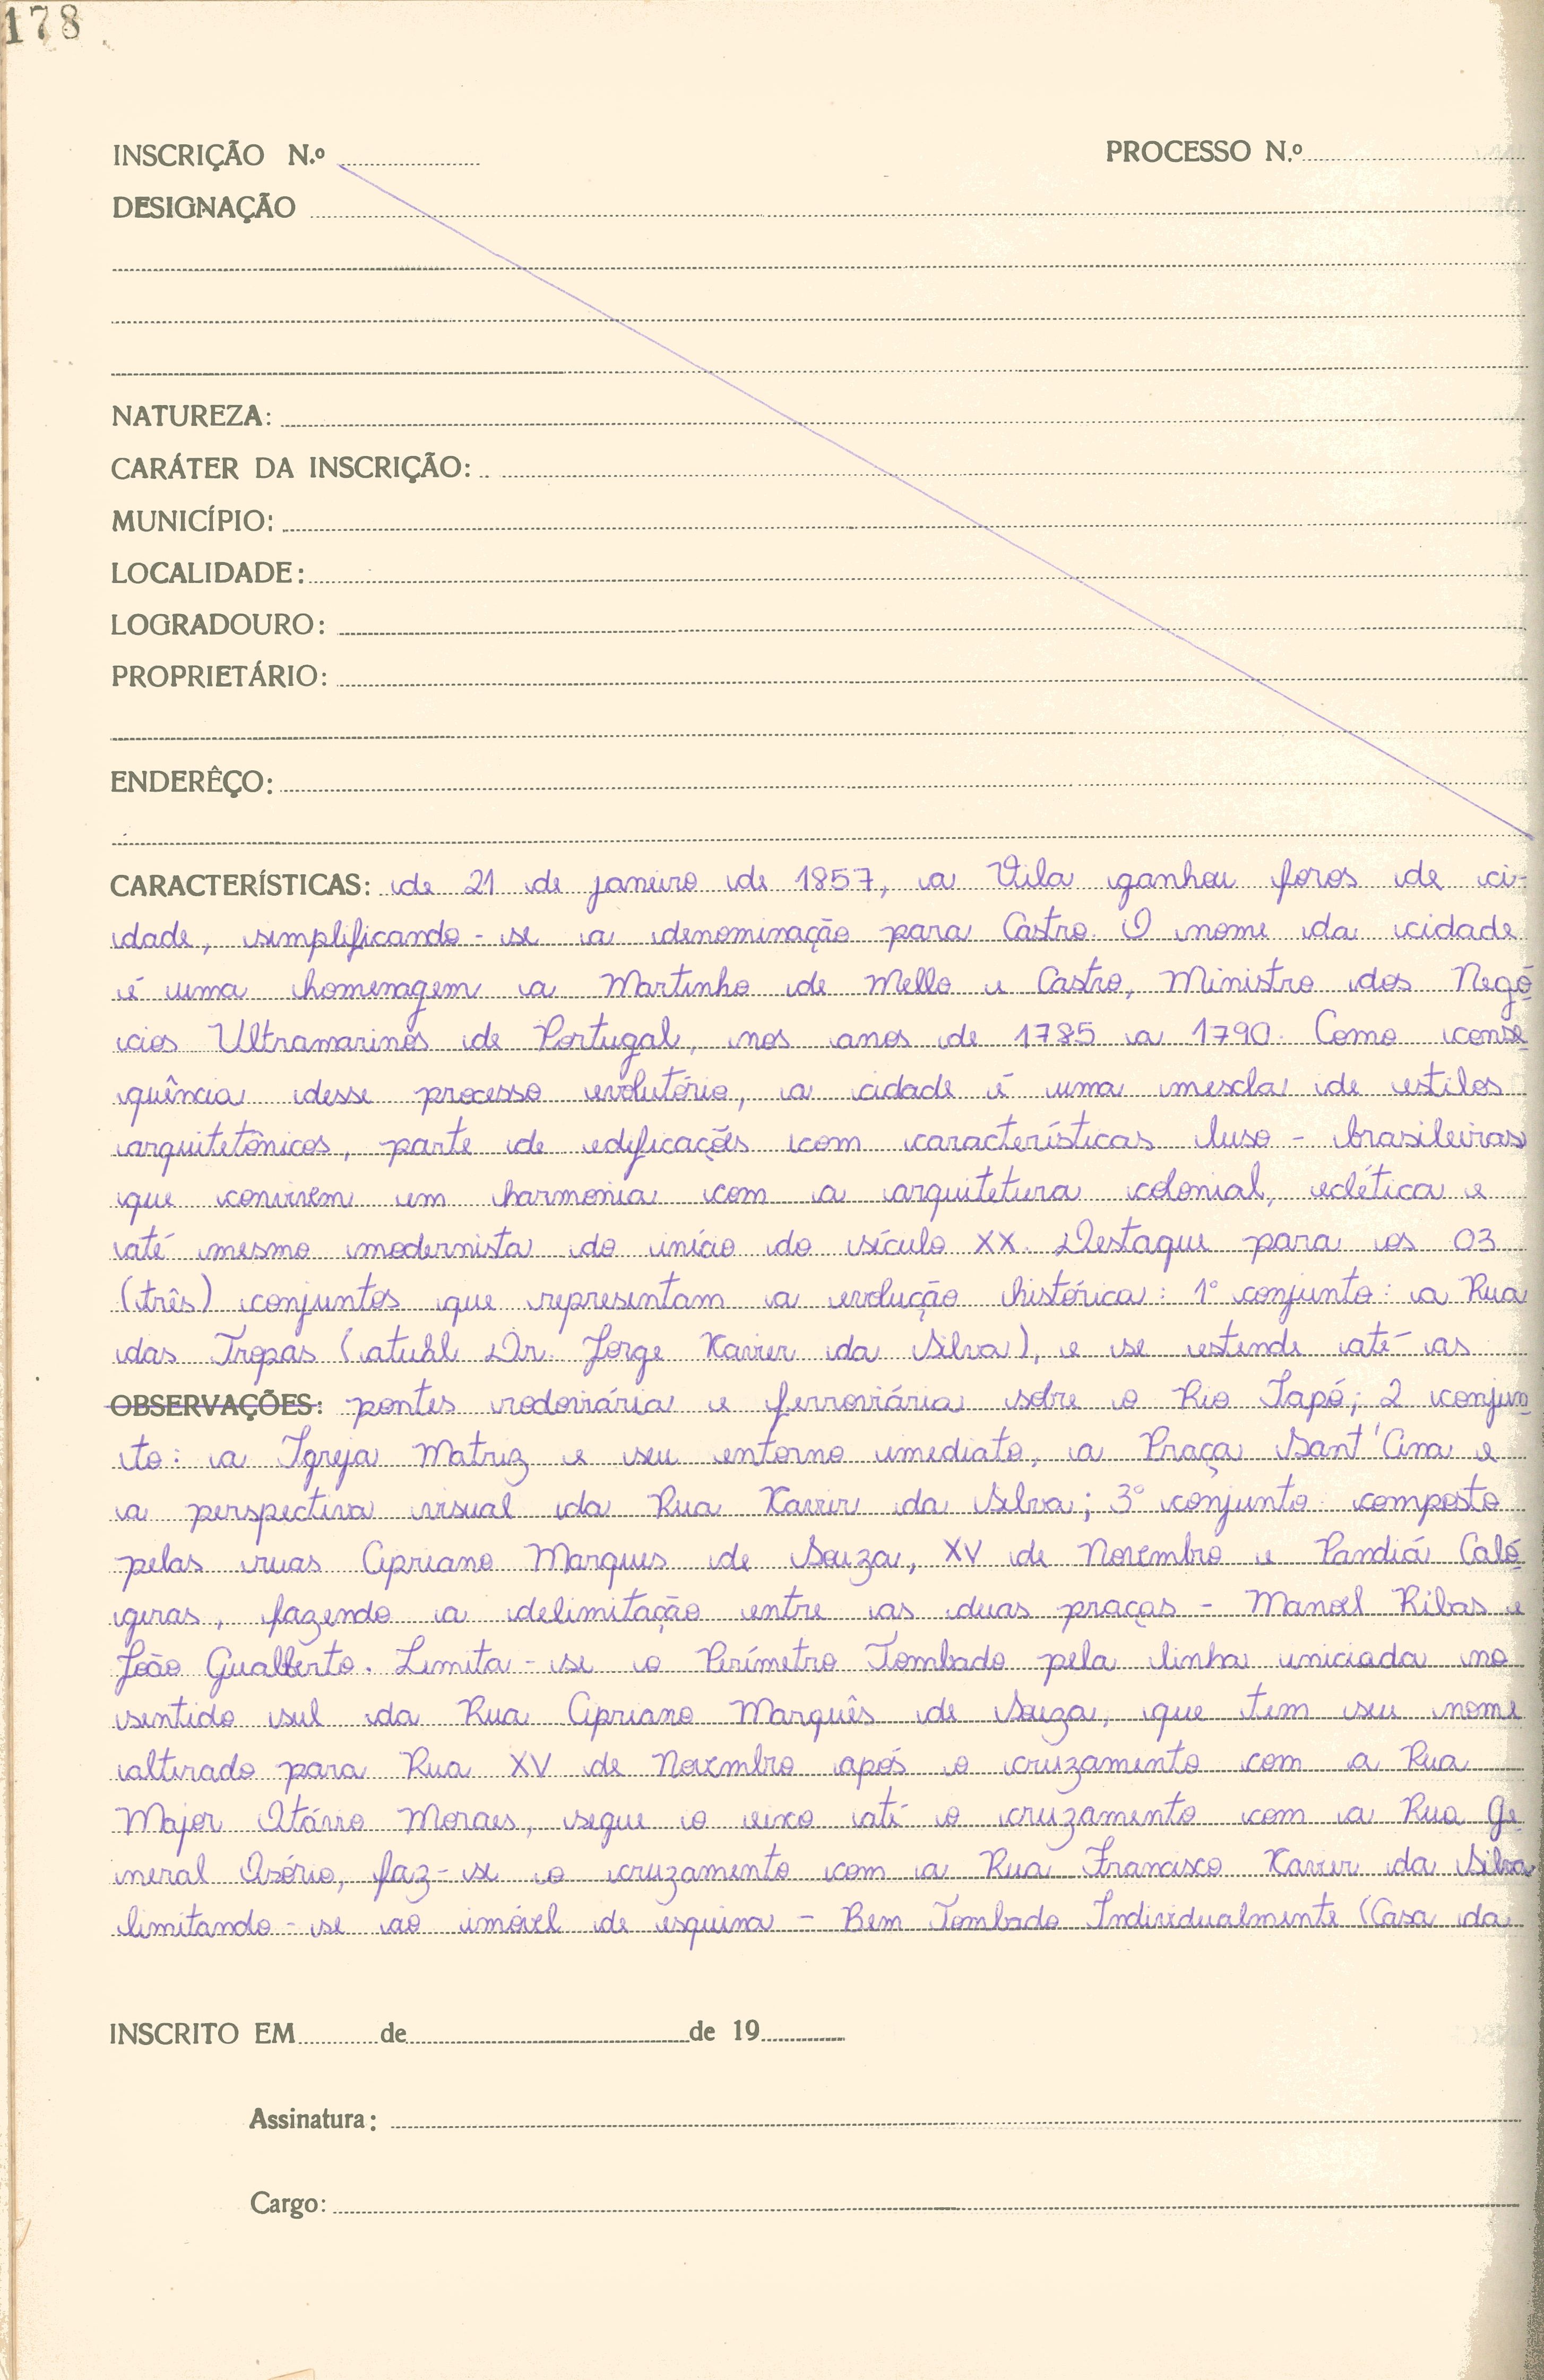 178
INSCRIÇÃO N.º PROCESSO N.º
DESIGNAÇÃO
NATUREZA:
CARÁTER DA INSCRIÇÃO:
MUNICÍPIO:
LOCALIDADE:
LOGRADOURO:
PROPRIETÁRIO:
ENDERÊÇO:
CARACTERÍSTICAS: de 21 de janeiro de 1857, a Vila ganhou foros de ci-
dade, simplificando-se a denominação para Castro. O nome da cidade
é uma homenagem a Martinho de Mello e Castro, Ministro dos Negó
cios Ultramarinos de Portugal, nos anos de 1785 a 1790. Como conse
quência desse processo evolutório, a cidade é uma mescla de estilos
arquitetônicos, parte de edificações com características luso-brasileiras
que convivem em harmonia com a arquitetura colonial, eclética e
até mesmo modernista do início do século XX. Destaque para os 03
(três) conjuntos que representam a evolução histórica: 1º conjunto: a Rua
das Tropas (atual Dr. Jorge Xavier da Silva), e se estende até as
OBSERVAÇÕES: pontes rodoviária e ferroviária sobre o Rio Iapó; 2 conjun
to: a Igreja Matriz e seu entorno imediato, a Praça Sant'Ana e
a perspectiva visual da Rua Xavier da Silva; 3º conjunto composto
pelas ruas Cipriano Marques de Souza, XV de Novembro e Pandiá Caló
geras, fazendo a delimitação entre as duas praças - Manoel Ribas e
João Gualberto. Limita-se o Perímetro Tombado pela linha iniciada no
sentido sul da Rua Cipriano Marquês de Souza, que tem seu nome
alterado para Rua XV de Novembro após o cruzamento com a Rua
Major Otávio Moraes, segue o eixo até o cruzamento com a Rua Ge
neral Osório, faz-se o cruzamento com a Rua Francisco Xavier da Silva
limitando-se ao imóvel de esquina - Bem Tombado Individualmente (Casa da
INSCRITO EM de de 19
Assinatura:
Cargo: